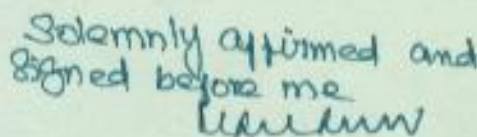 Solemnly affirmed and
Signed before me